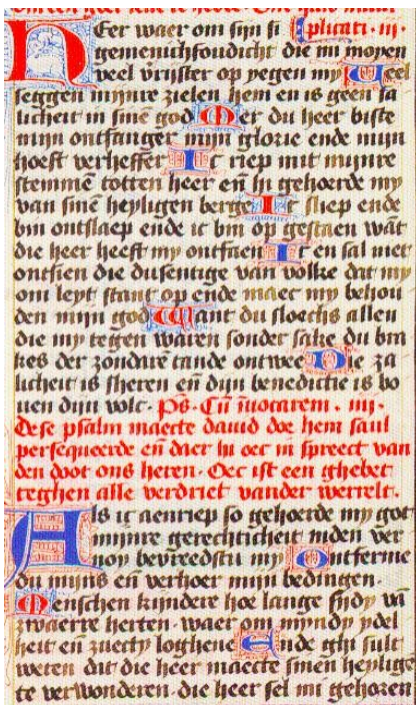 HEer waer om sijn si plicati · iij ·
gemenichfoudicht die mi moyen
veel vrijster op yegen my Veel
seggen mijnre zielen hem en is geen sa
licheit in sinē god Mer du heer biste
mijn ontfanger mijn glorie ende mijn
hoeft verheffer Ic riep mit mijnre
stemmē totten heer eñ hi gehoerde my
van sinē heyligen berge Ic sliep ende
bin ontslaep ende ic bin op gestaen wāt
die heer heeft my ontfaen Ic en sal niet
ontsien die dusentige van volke dat my
om leyt stant op ende maec my behou
den mijn god Want du sloechs allen
die my tegen waren sonder sake du bra
kes der zondarē tande ontwee Der za
licheit is sheren eñ dijn benedictie is bo
uen dijn volc · Ps · Cū īuocarem · iiij ·
Dese psalm maecte dauid doe hem saul
persequeerde eñ daer hi oec in spreect van
den doot ons heren · Oec ist een ghebet
teghen alle verdriet vander werrelt ·
Als ic aenriep so gehoerde my got
mijnre gerechticheit inden ver
noy bevreedstu my Ontferme
du mijns eñ verhoer mijn bedingen ·
Menschen kijndere hoe lange sijdy vā
zwaerre herten · waer om myndy ydel
heit eñ suecty loghene Ende ghi sult
weten dat die heer maecte sinen heylige
te verwonderen · die heer sel mi gehoren